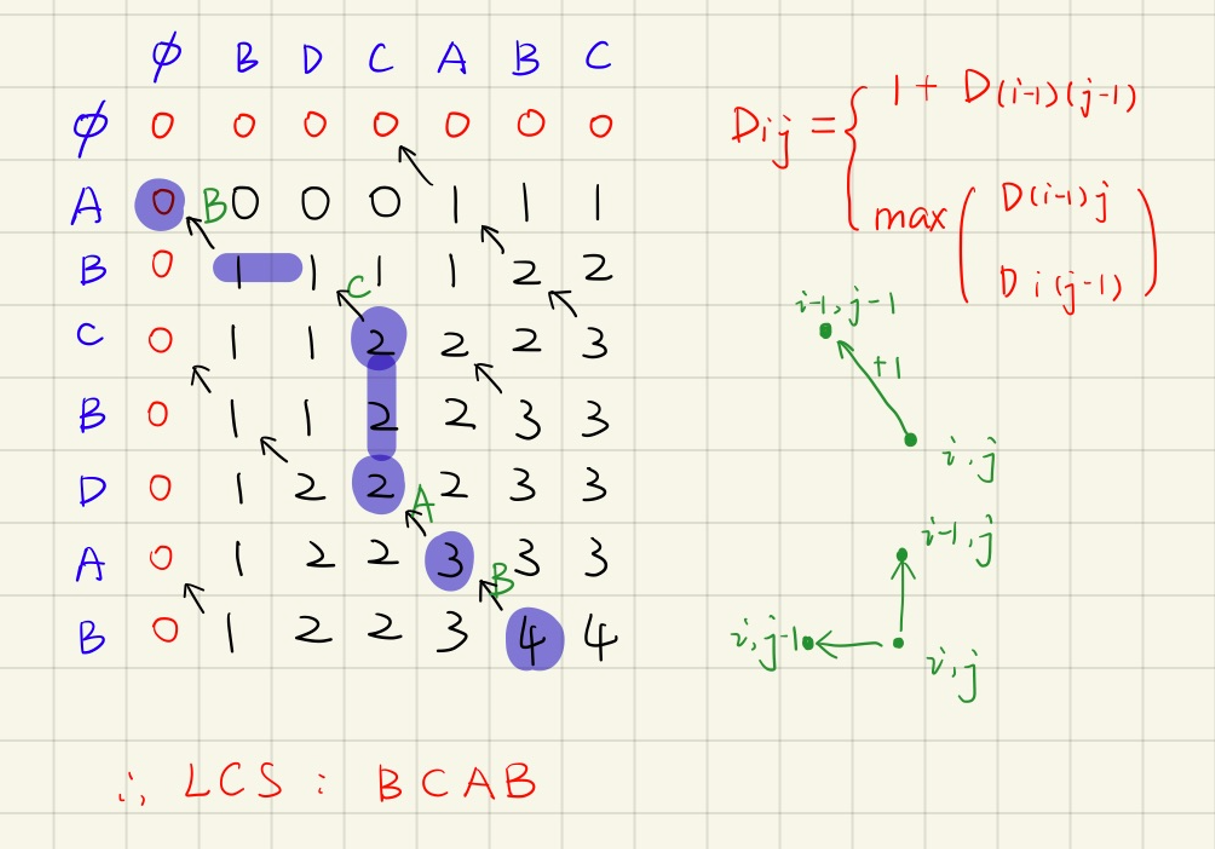 ϕ B D C A B C
ϕ 0 0 0 0 0 0 0
A 0 B 0 0 0 1 1 1
B 0 1 1 1 1 2 2
C
C 0 1 1 2 2 2 3
B 0 1 1 2 2 3 3
D 0 1 2 2 2 3 3
A
A 0 1 2 2 3 3 3
B
B 0 1 2 2 3 4 4
∴ LCS : BCAB
Dij = {
1 + D(i-1)(j-1)
max ( D(i-1)j
Di(j-1) )
i-1, j-1
+1
i, j
i-1, j
i, j-1
i, j